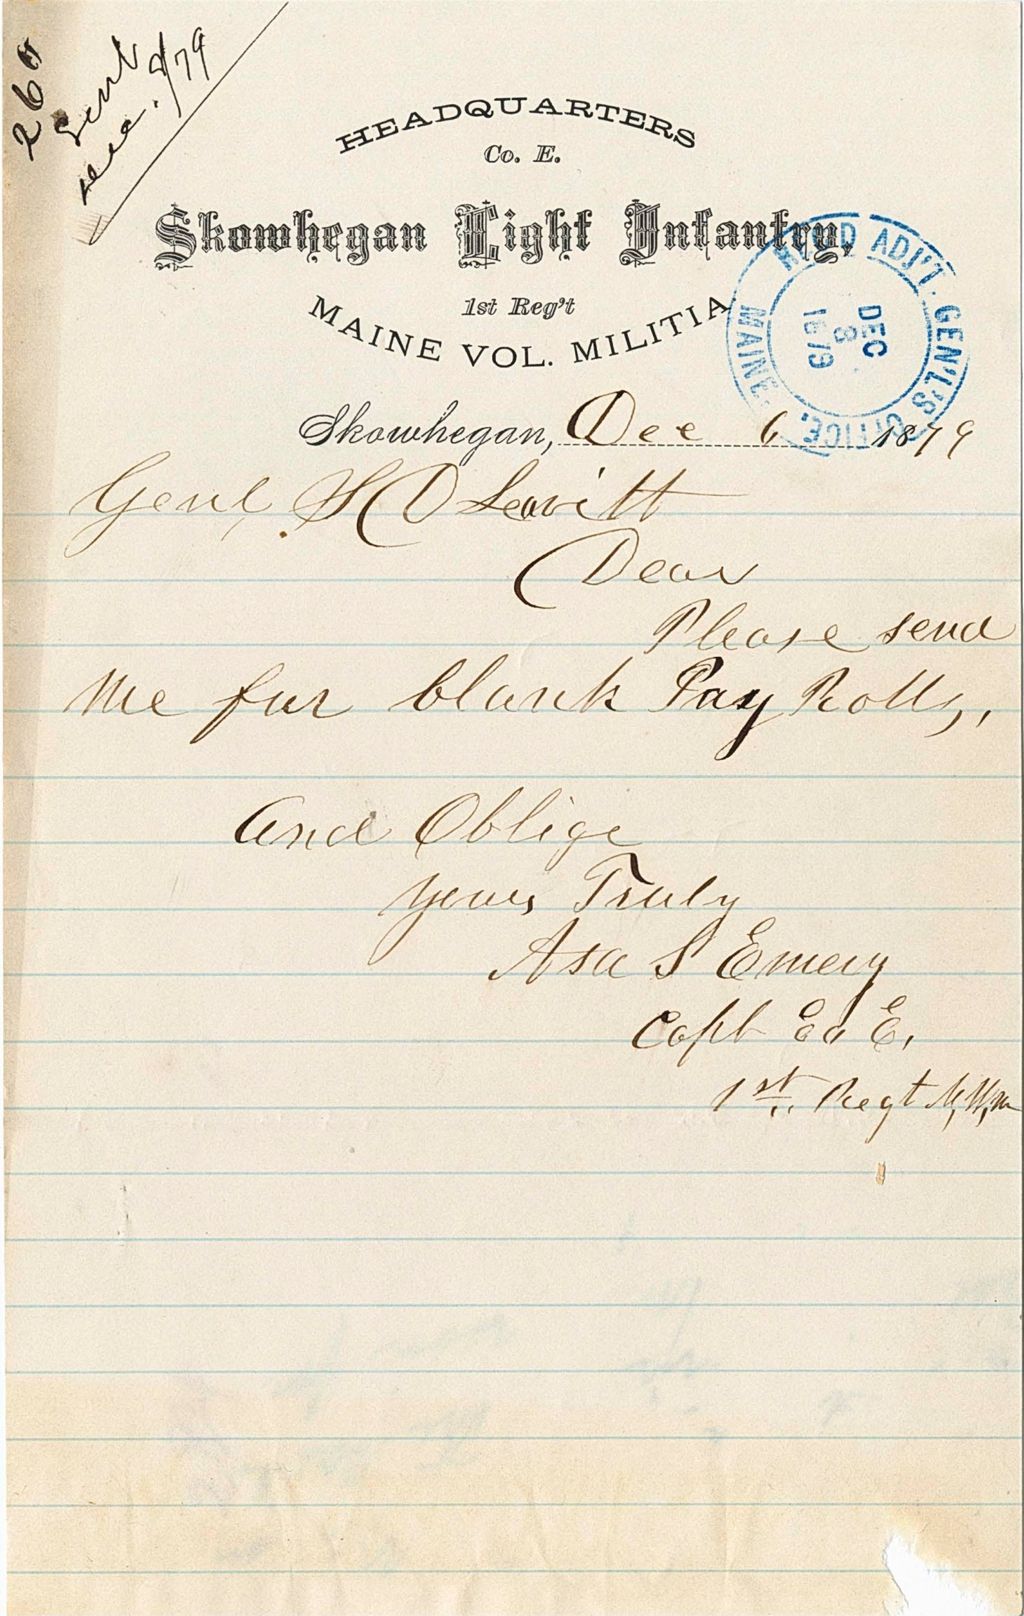 260
Sent
Dec. 8/79
HEADQUARTERS
Co. E.
Skowhegan Light Infantry,
1st Reg't
MAINE VOL. MILITIA
HEAD ADJ'T. GEN'L'S OFFICE. MAINE.
DEC
8
1879
Skowhegan, Dec 6 1879
Genl, S D Leavitt
Dear
Please send
me fur blank Pay Rolls,
And Oblige
Yours Truly
Asa S Emery
Capt Co E,
1st Regt M, V, M